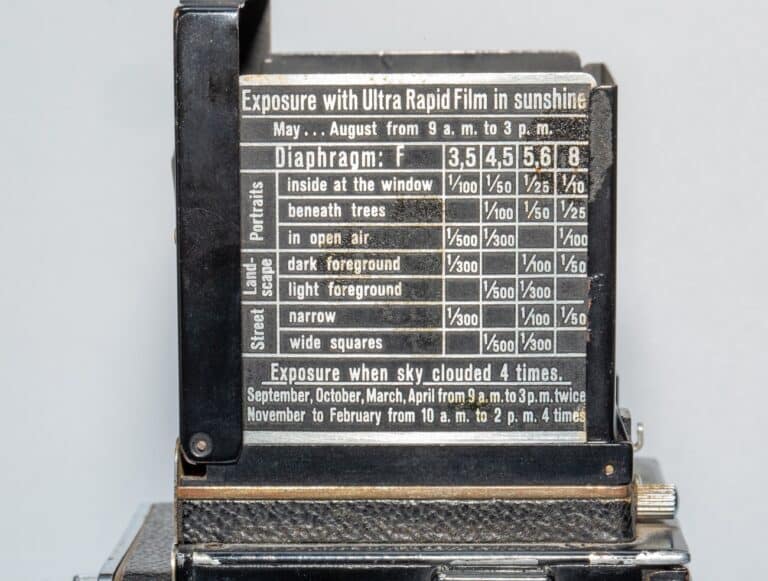 Exposure with Ultra Rapid Film in sunshine
May... August from 9 a. m. to 3 p. m.
Diaphragm: F 3,5 4,5 5,6 8
Portraits
inside at the window 1/100 1/50 1/25 1/10
beneath trees 1/100 1/50 1/25
in open air 1/500 1/300 1/100
Land-
scape
dark foreground 1/300 1/100 1/50
light foreground 1/500 1/300
Street
narrow 1/300 1/100 1/50
wide squares 1/500 1/300
Exposure when sky clouded 4 times.
September, October, March, April from 9 a.m. to 3 p.m. twice
November to February from 10 a. m. to 2 p. m. 4 times